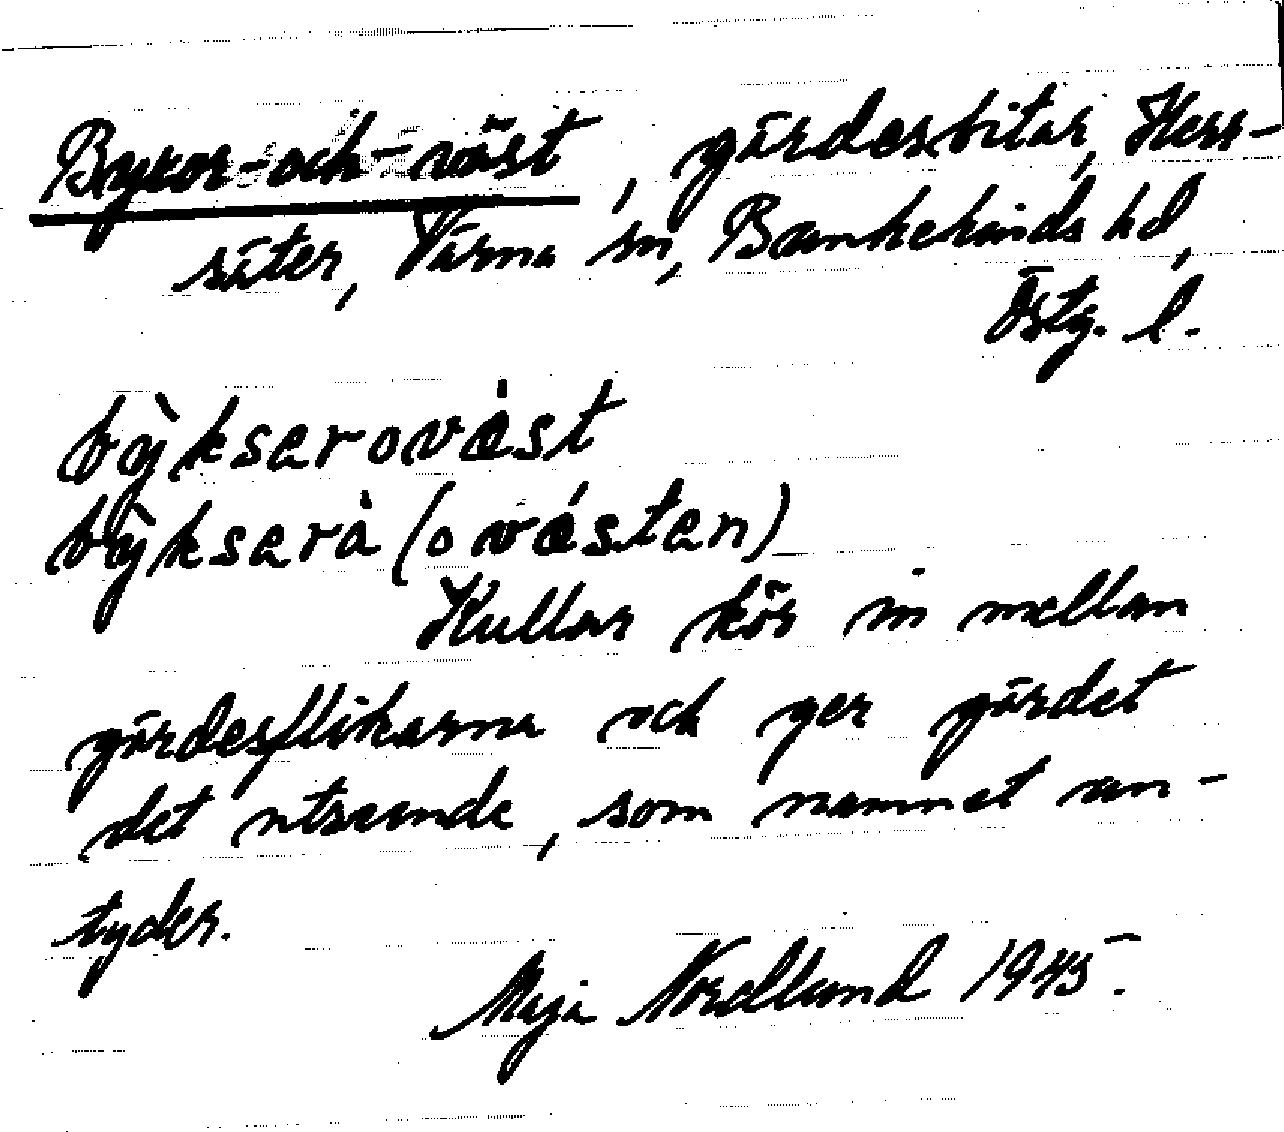 Byxor-och-väst, gärdesbitar, Herr-
säter, Värna sn, Bankekinds hd,
Östg. l.
bẏ̀kserovást
bẏ̀kserà (o vásten)
Kullar kör in mellan
gärdesflikarna och ger gärdet
det utseende, som namnet an-
tyder.
Maja Nordlund 1945.